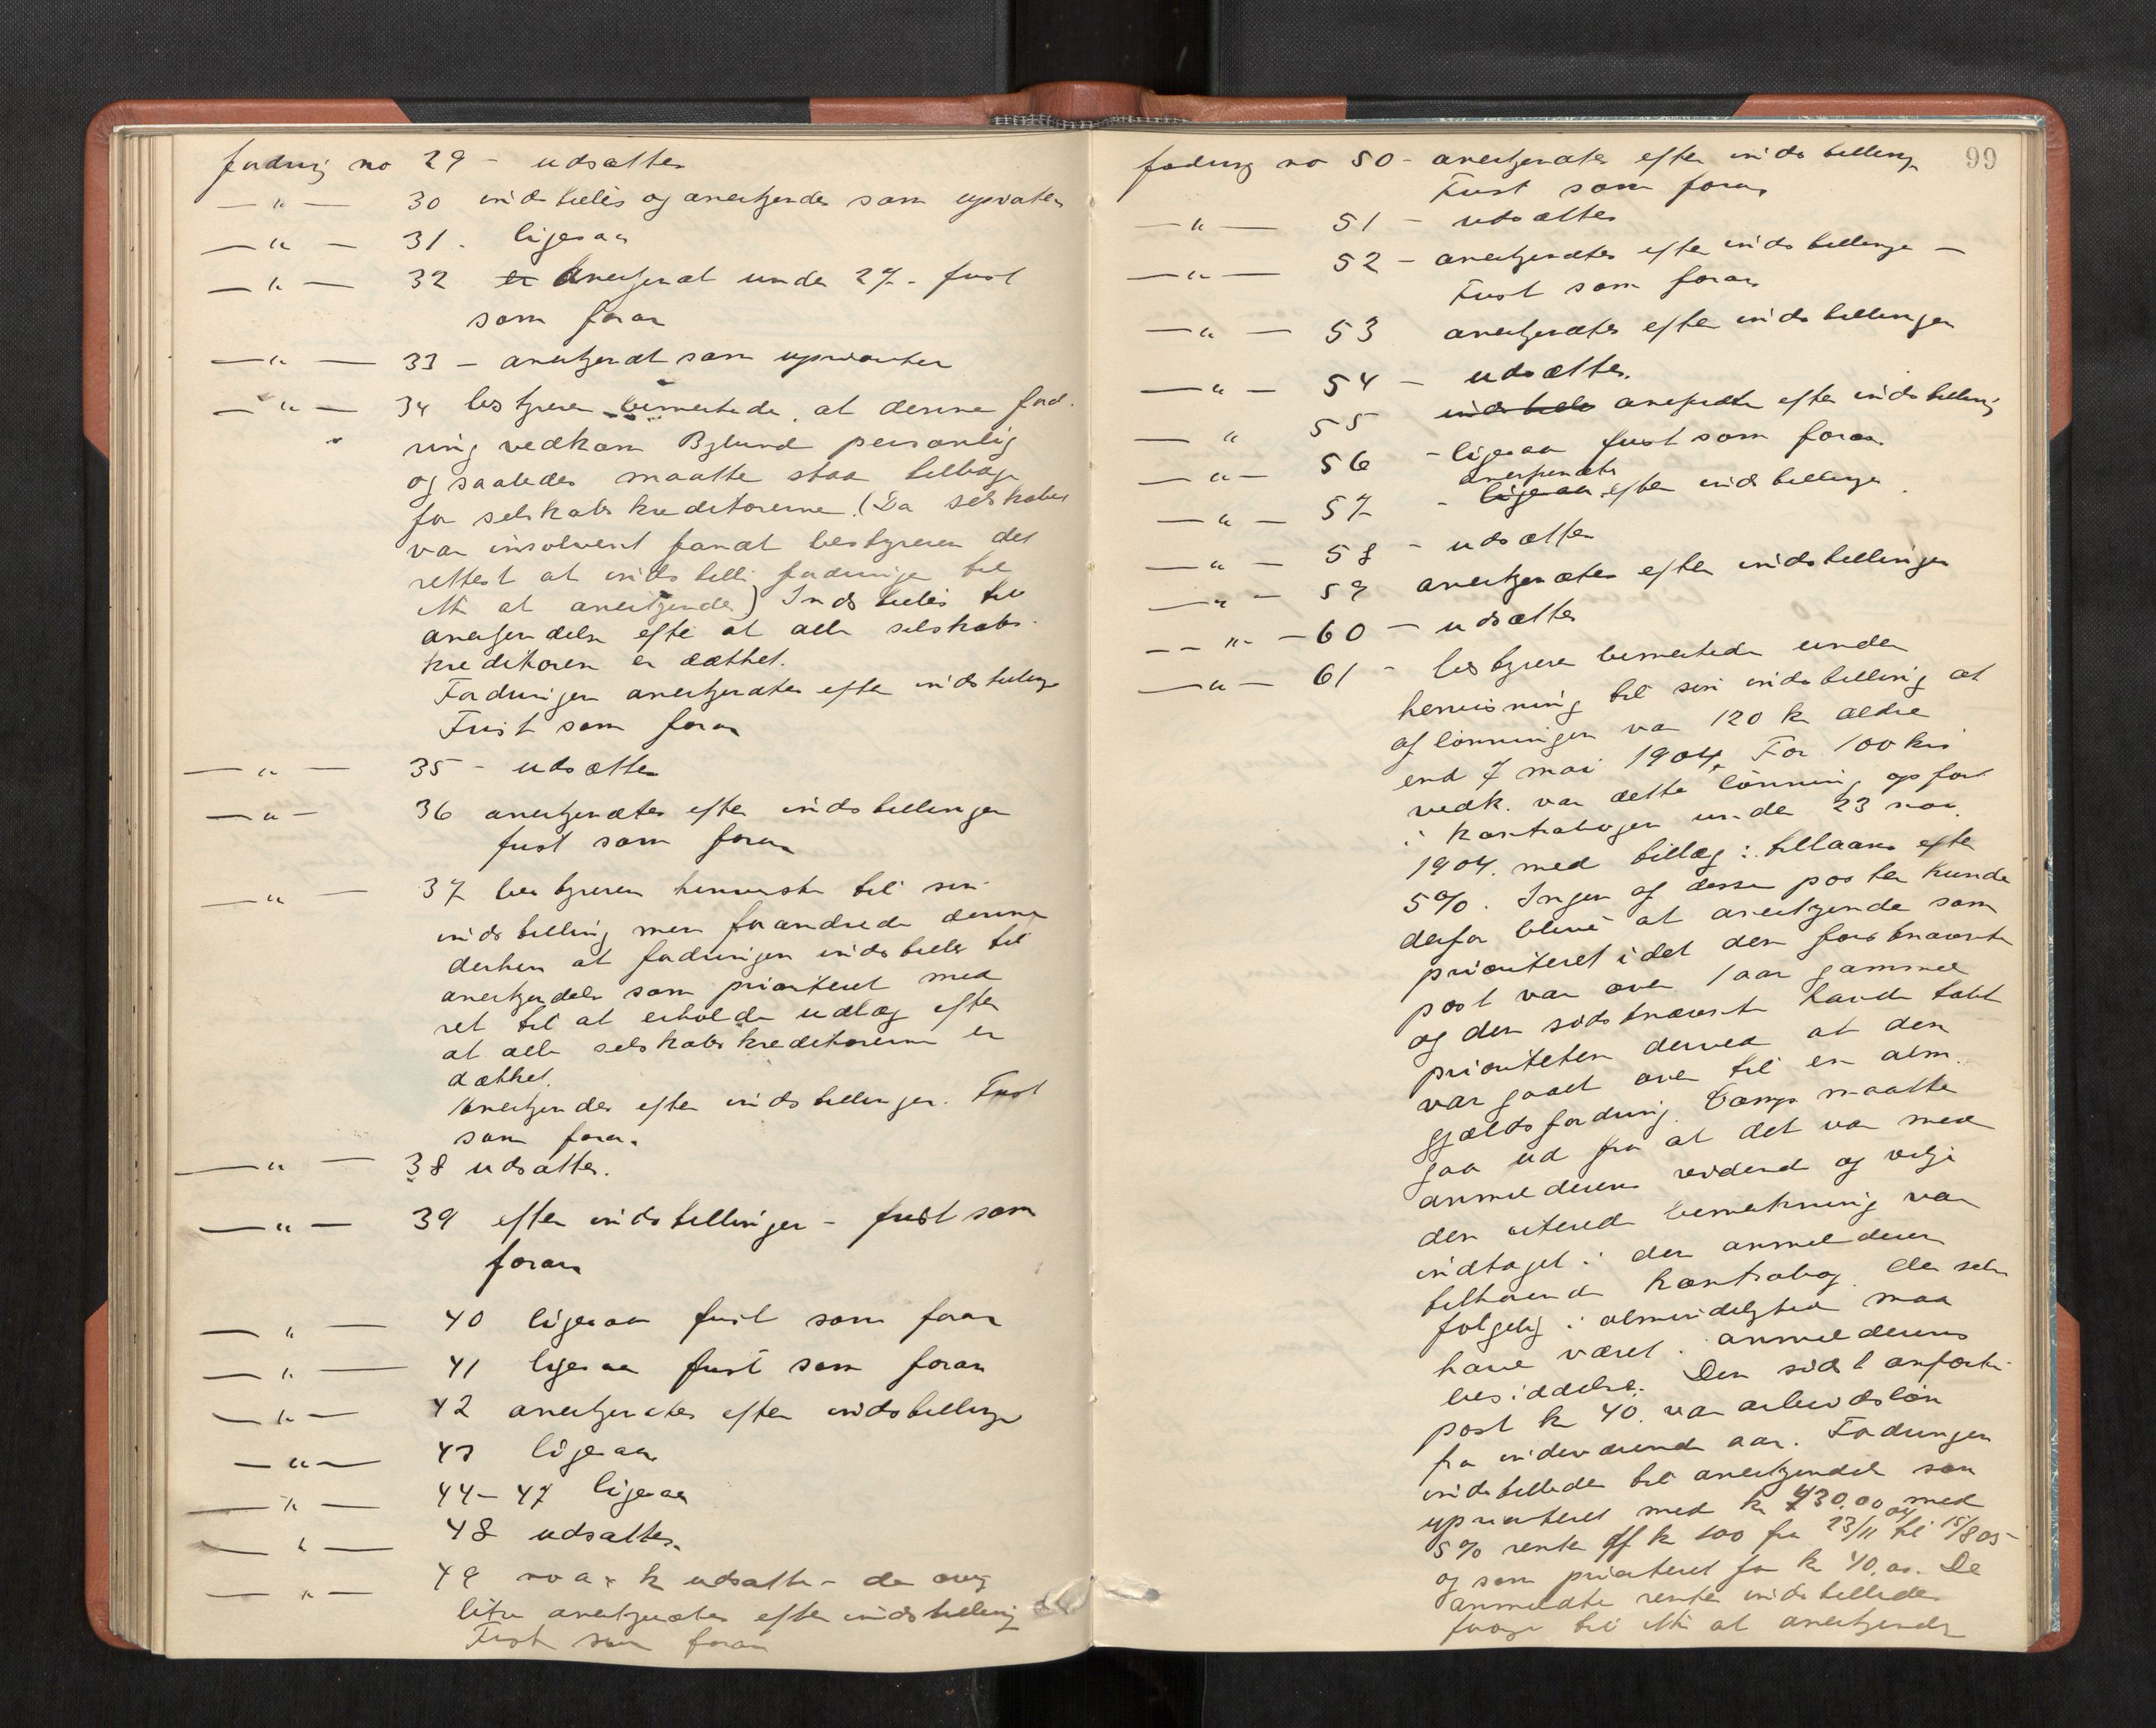 fordring no 29 - udsættes
— " — 30 indstilles og anerkjendes som upriorite
— " — 31. ligesaa
— " — 32 er Anerkjendt under 27. frist
som foran
— " — 33 - anerkjendt som uprioritert
— " — 34 bestyreren bemerkede at denne ford-
ring vedkom Bylund personlig
og saaledes maatte staa tilbage
for selskabskreditorerne. (Da selskabet
var insolvent fandt bestyreren det
rettest at indstille fordringen til
ikke at anerkjendes) Indstilles til
anerkjendelse efter at alle selskabs-
kreditorer er dækket.
Fordringen anerkjendtes efter indstilling
Frist som foran
— " — 35 - udsættes
— " — 36 anerkjendtes efter indstillingen
frist som foran
— " — 37 bestyreren henviste til sin
indstilling men forandrede denne
derhen at fordringen indstilles til
anerkjendelse som prioriteret med
ret til at erholde udlæg efter
at alle selskabskreditorerne er
dækket.
Anerkjendes efter indstillingen. Frist
som foran
— " — 38 udsættes.
— " — 39 efter indstillingen - frist som
foran
— " — 40 ligesaa frist som foran
— " — 41 ligesaa frist som foran
— " — 42 anerkjendtes efter indstilling
— " — 43 ligesaa
— " — 44-47 ligesaa
— " — 48 udsættes.
— " — 49 udsættes - de øvrige
anerkjendtes efter indstilling
Frist som foran
99
fordring no 50 - anerkjendtes efter indstilling
Frist som foran
— " — 51 - udsættes
— " — 52 - anerkjendtes efter indstillingen —
Frist som foran
— " — 53 anerkjendtes efter indstillingen
— " — 54 - udsættes.
— " 55 indstilles anerkjendtes efter indstilling
— " — 56 - ligesaa frist som foran
anerkjendtes
— " — 57 - ligesaa efter indstillingen
— " — 58 - udsættes
— " — 59 anerkjendtes efter indstillingen
— " — 60 - udsættes
— " — 61 - bestyreren bemerkede under
henvisning til sin indstilling at
af lønningen var 120 kr ældre
end 7 mai 1904. For 100 krs
vedk. var dette lønning opført
i kontrabogen under 23 nov.
1904. med tillæg: tillaans efter
5%. Ingen af disse poster kunde
derfor blive at anerkjende som
prioriteret idet den førstnævnte
post var over 1 aar gammel
og den sidstnævnte havde tabt
prioriteten derved at den
var gaaet over til en alm.
gjældsfordring. Comp maatte
gaa ud fra at det var med
anmelderens vidende og vilje
den citerede bemerkning var
indtaget i den anmelderen
tilhørende kontrabog der selv-
følgelig i almindelighed maa
have været i anmelderens
besiddelse. Den sidst anførte
post kr 40. var arbeidsløn
fra indeværende aar. Fordringen
indstilledes til anerkjendelse som
uprioriteret med kr 430.00 med
5% rente af kr 100 fra 23/11 04 til 15/8 05 -
og som prioriteret for kr 40.00. De
anmeldte renter indstilledes
til ikke at anerkjendes